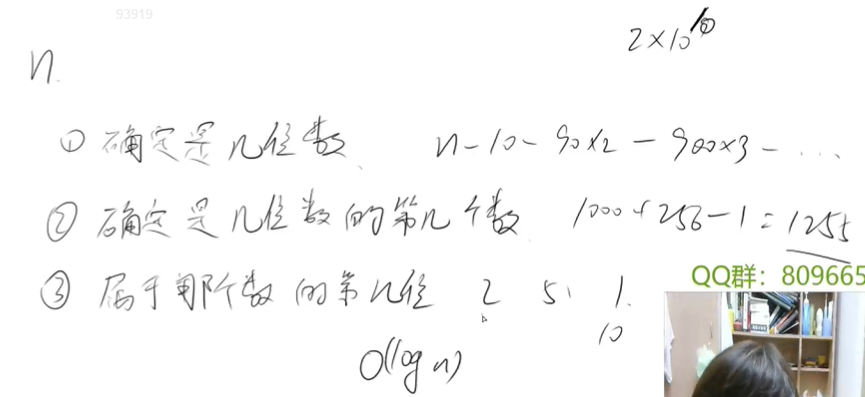 93919
2×10
n.
① 确定是几位数 n-10-90×2-900×3-...
② 确定是几位数的第几个数 1000+256-1=1255
③ 属于那个数的第几位 2 5. 1.
10
O(log n)
QQ群：809665